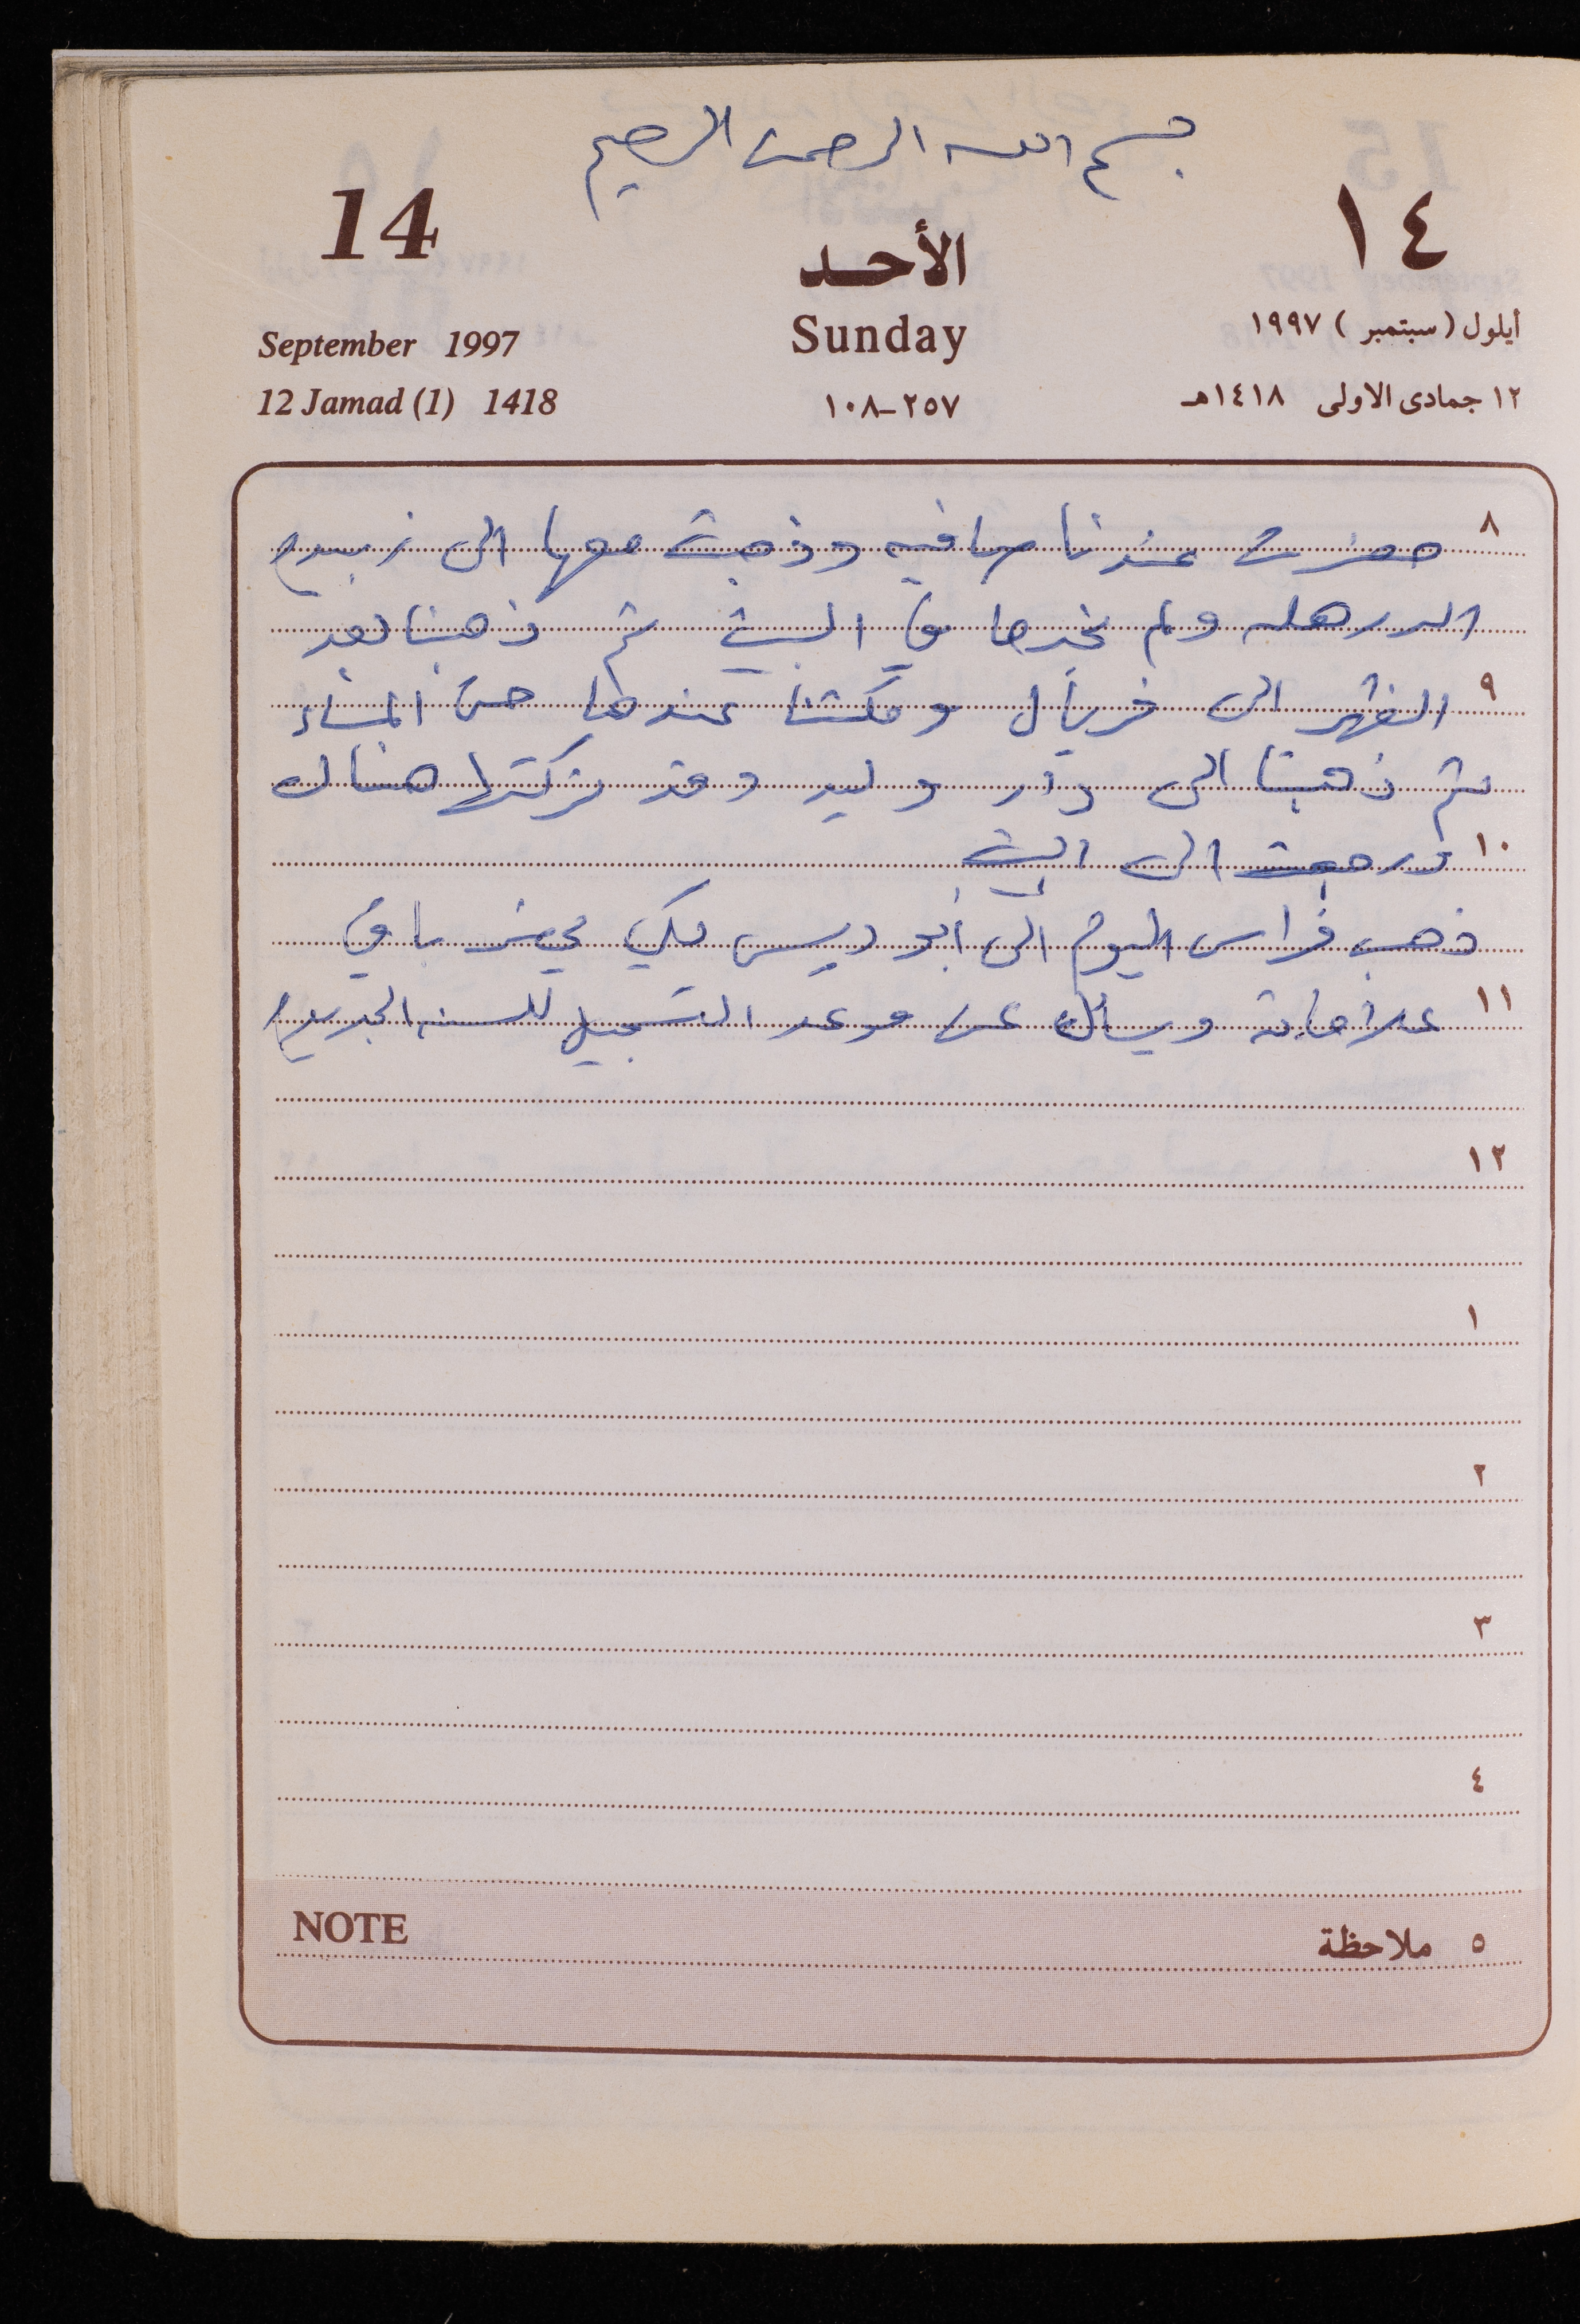 بسم الله الرحمن الرحيم
14
الأحد
١٤
September 1997
Sunday
أيلول (سبتمبر) ١٩٩٧
12 Jamad (1) 1418
٢٥٧-١٠٨
١٢ جمادى الاولى ١٤١٨هـ
٨ حضرت عندنا صافيه وذهبت معها الى
ولم نجدها في البيت ثم ذهبنا بعد
٩ الظهر الى فريال ومكثنا عندها حتى المساء
ثم ذهبنا الى دار وليد وقد تركتها هناك
١٠ ورجعت الى البيت
ذهب فراس اليوم الى أبو ديس لكي يحضر باقي
١١ علاماته ويسأل عن موعد التسجيل للسنه الجديده
١٢
١
٢
٣
٤
NOTE
٥ ملاحظة